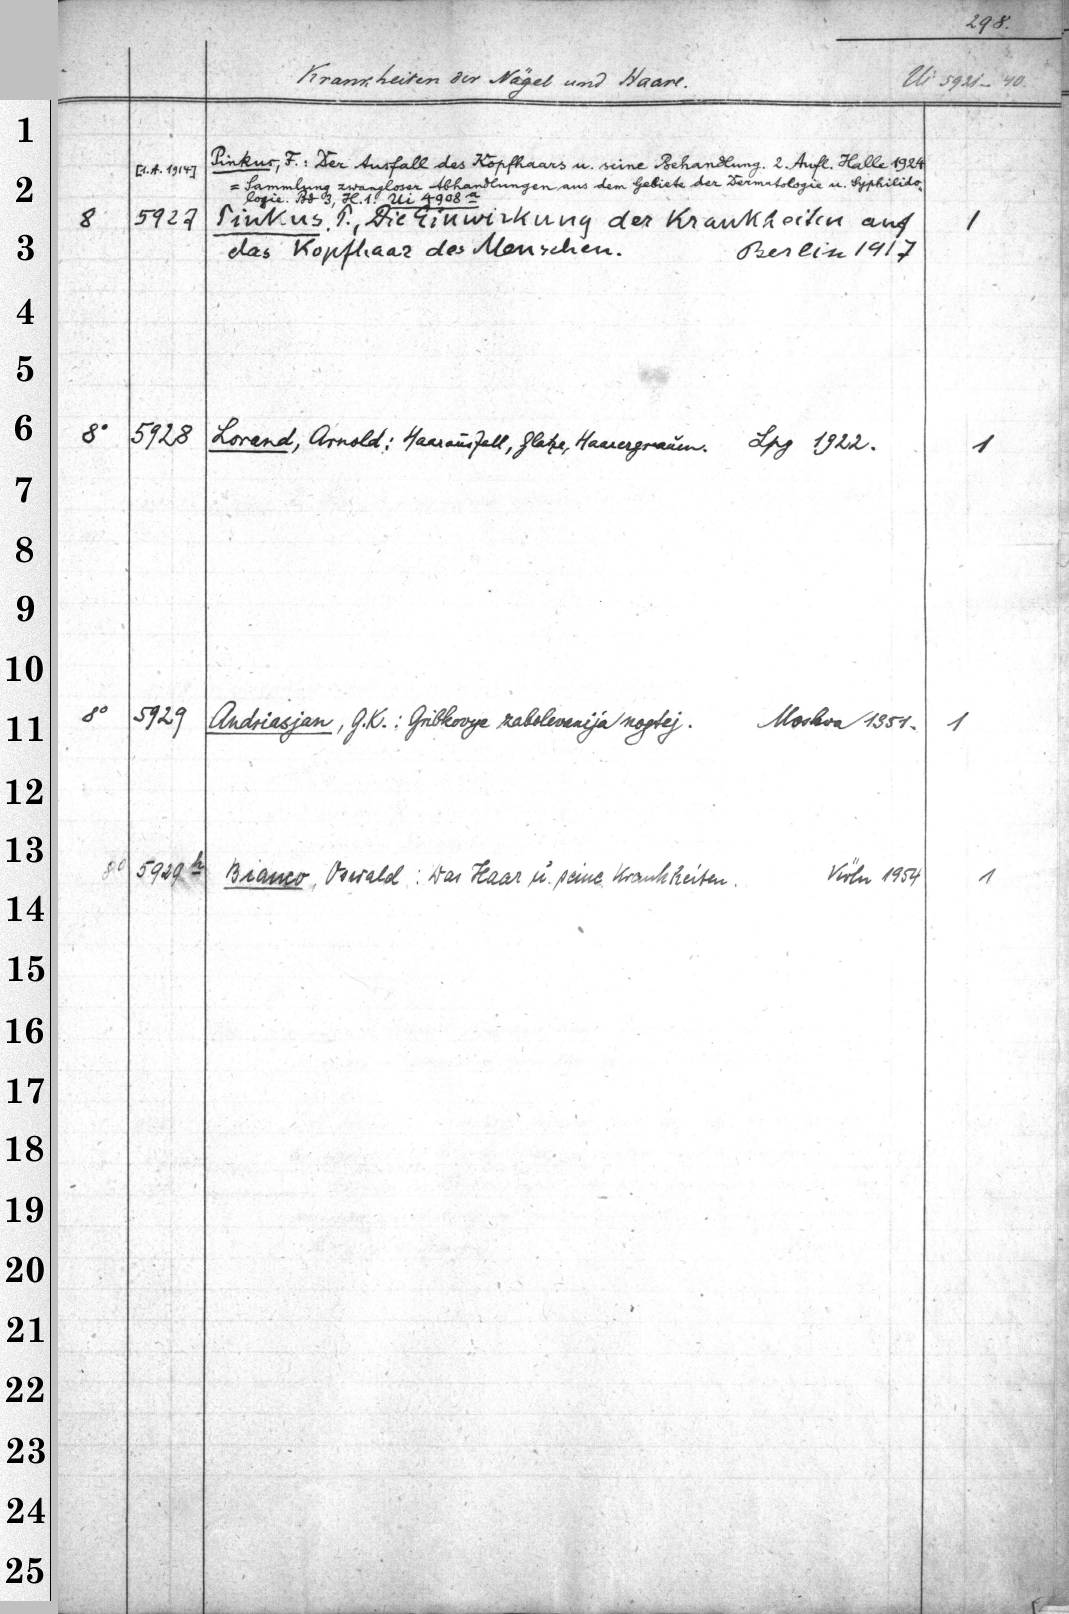 298.
Krankheiten der Nägel und Haare. Ui 5921-40.
1
[1.A. 1914] Pinkus, F.: Der Ausfall des Kopfhaars u. seine Behandlung. 2. Aufl. Halle 1924
2
= Sammlung zwangloser Abhandlungen aus dem Gebiete der Dermatologie u. Syphilido-
logie. Bd 3, H.1. Ui 4908
8 5927 Pinkus, F., Die Einwirkung der Krankheiten auf 1
3 das Kopfhaar des Menschen. Berlin 1917
4
5
6 8° 5928 Lorand, Arnold: Haarausfall, Glatze, Haarergrauen. Lpg 1922. 1
7
8
9
10
11 8° 5929 Andriasjan, G.K.: Gribkovye zabolevanija nogtej. Moskva 1951. 1
12
13
8° 5929 h Bianco, Oswald: Das Haar u. seine Krankheiten. Köln 1954 1
14
15
16
17
18
19
20
21
22
23
24
25